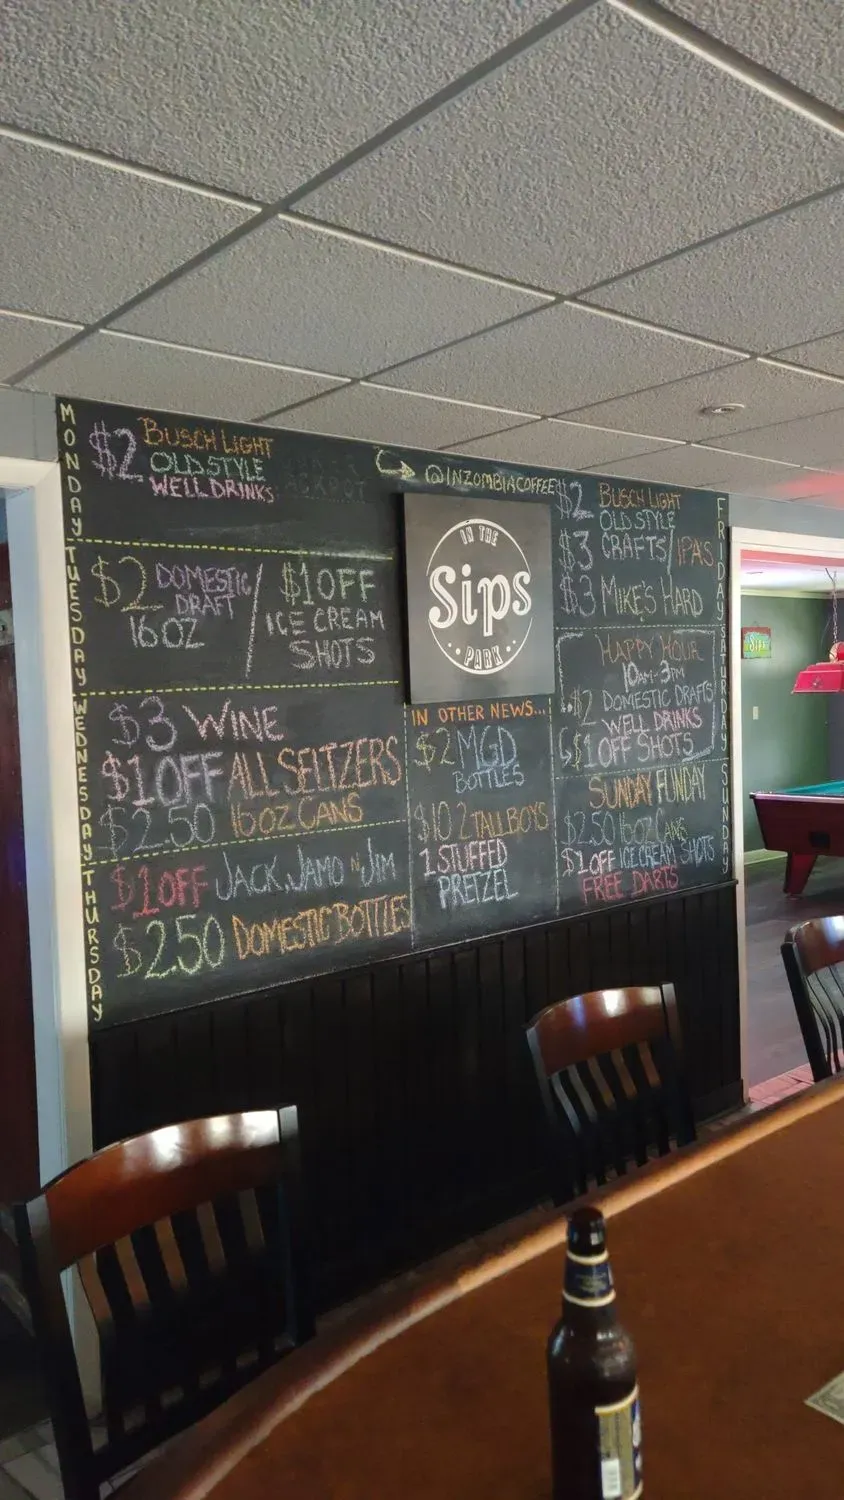 MONDAY
$2 BUSCH LIGHT
OLD STYLE
WELL DRINKS
TUESDAY
$2 DOMESTIC
DRAFT
16 OZ
/
$1 OFF
ICE CREAM
SHOTS
WEDNESDAY
$3 WINE
$1 OFF ALL SELTZERS
$2.50 16 OZ CANS
THURSDAY
$1 OFF JACK, JAMO N JIM
$2.50 DOMESTIC BOTTLES
@INZOMBIACOFFEE
IN THE
Sips
PARK
IN OTHER NEWS...
$2 MGD
BOTTLES
$10 2 TALLBOYS
1 STUFFED
PRETZEL
FRIDAY
$2 BUSCH LIGHT
OLD STYLE
$3 CRAFTS/IPA'S
$3 MIKE'S HARD
SATURDAY
HAPPY HOUR
10AM-3PM
$2 DOMESTIC DRAFTS
WELL DRINKS
$1 OFF SHOTS
SUNDAY
SUNDAY FUNDAY
$2.50 16 OZ CANS
$1 OFF ICE CREAM SHOTS
FREE DARTS
Sips